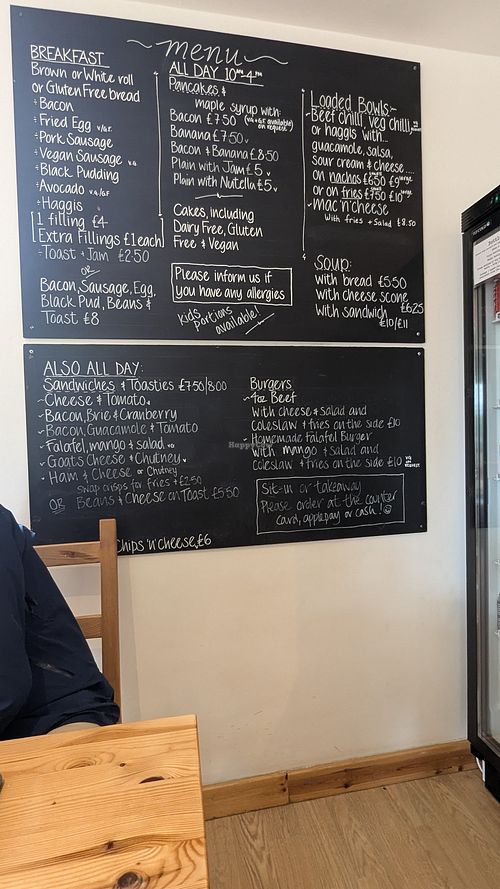 menu
BREAKFAST
Brown or White roll
or Gluten Free bread
÷ Bacon
÷ Fried Egg v/G.F.
÷ Pork Sausage
÷ Vegan Sausage v.G
÷ Black Pudding
÷ Avocado v.G/G.F
÷ Haggis
1 filling £4
Extra Fillings £1 each
- Toast + Jam £2.50
OR
Bacon, Sausage, Egg,
Black Pud, Beans &
Toast £8
ALL DAY 10AM-4PM
Pancakes &
maple syrup with:
Bacon £7.50 (v.G + G.F. available on request)
Banana £7.50 v
Bacon & Banana £8.50
Plain with Jam £5 v
Plain with Nutella £5 v
Cakes, including
Dairy Free, Gluten
Free & Vegan
Please inform us if
you have any allergies
Kids
portions
available!
Loaded Bowls:-
- Beef chilli, veg chilli,
or haggis with...
guacamole, salsa,
sour cream & cheese....
on nachos £6.50 £9 large
or on fries £7.50 £10 large
- mac'n'cheese
with fries + salad £8.50
SOUP:
with bread £5.50
with cheese scone £6.25
with sandwich £10/£11
ALSO ALL DAY:
Sandwiches & Toasties £7.50/8.00
- Cheese & Tomato v
- Bacon, Brie & Cranberry
- Bacon, Guacamole & Tomato
- Falafel, mango & salad v.G
- Goats Cheese & Chutney v
- Ham & Cheese or Chutney
swap crisps for fries + £2.50
OR Beans & Cheese on Toast £5.50
Chips 'n' cheese £6
Burgers
- 4oz Beef
with cheese & salad and
coleslaw + fries on the side £10
- Homemade falafel Burger
with mango & salad and
coleslaw + fries on the side £10 v.G on request
Sit-in or takeaway
Please order at the counter
Card, applepay or cash! ☺
HappyCow